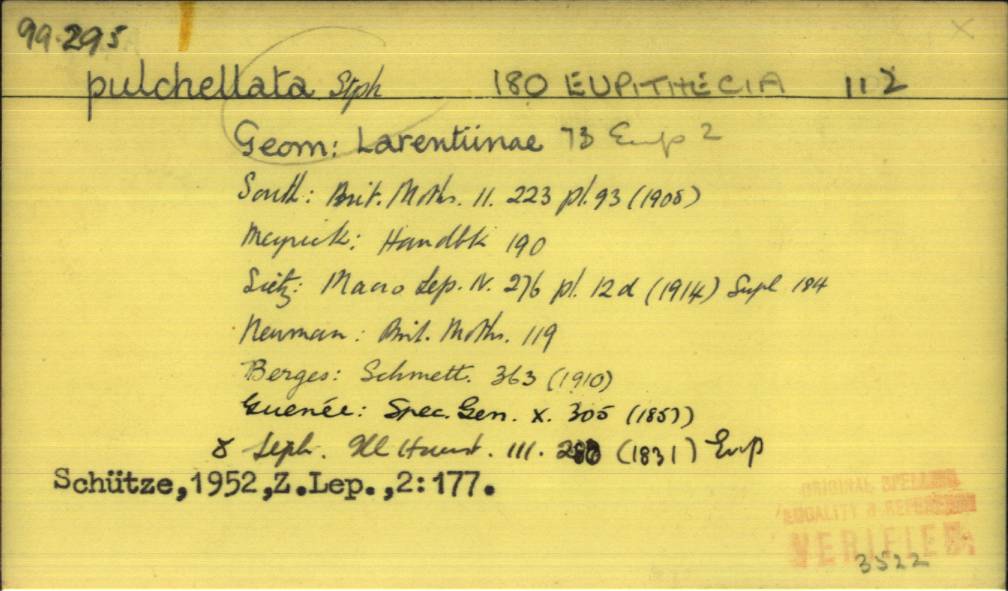 99.295
pulchellata Stph 180 EUPITHECIA 112
Geom: Larentiinae 73 Eup 2
South: Brit. Moths. II. 223 pl. 93 (1908)
Meyrick: Handbk 190
Sietz: Macro Lep. IV. 276 pl. 12d (1914) Supl 184
Newman: Brit. Moths. 119
Berges: Schmett. 363 (1910)
Guenée: Spec. Gen. X. 305 (1857)
8 Steph. Ill Haust. III. (1831) Eup
Schütze,1952,Z.Lep.,2:177.
ORIGINAL SPELLING
LOCALITY & REFERENCE
VERIFIED
3522